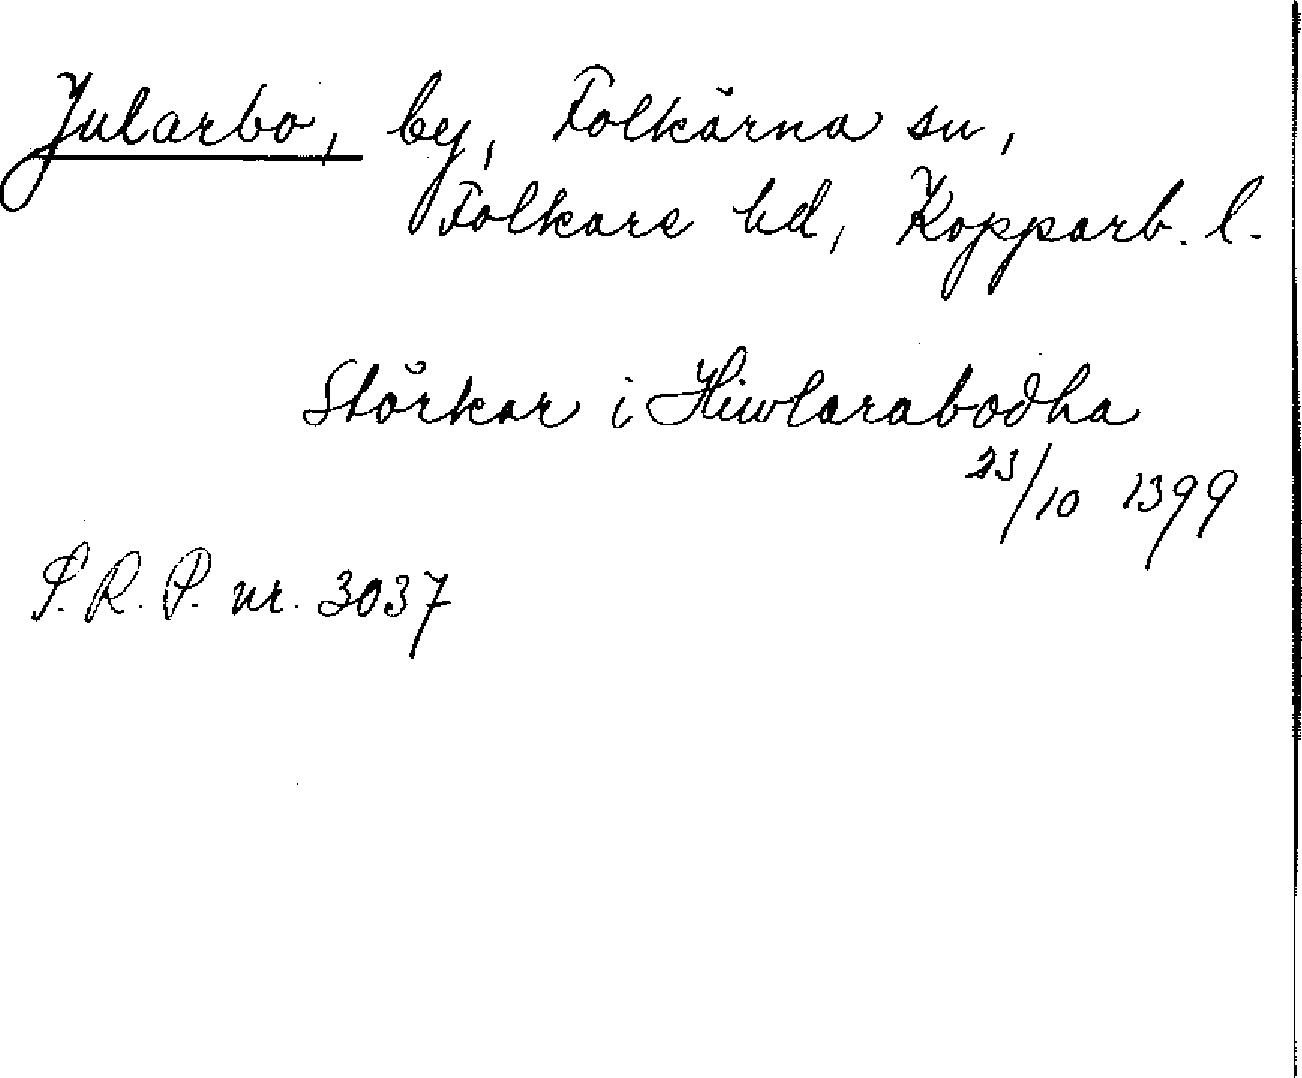 Jularbo, by, Folkärna sn,
Folkare hd, Kopparb. l.
Störkar i Hiwlarabodha
23/10 1399
S. R. P. nr. 3037